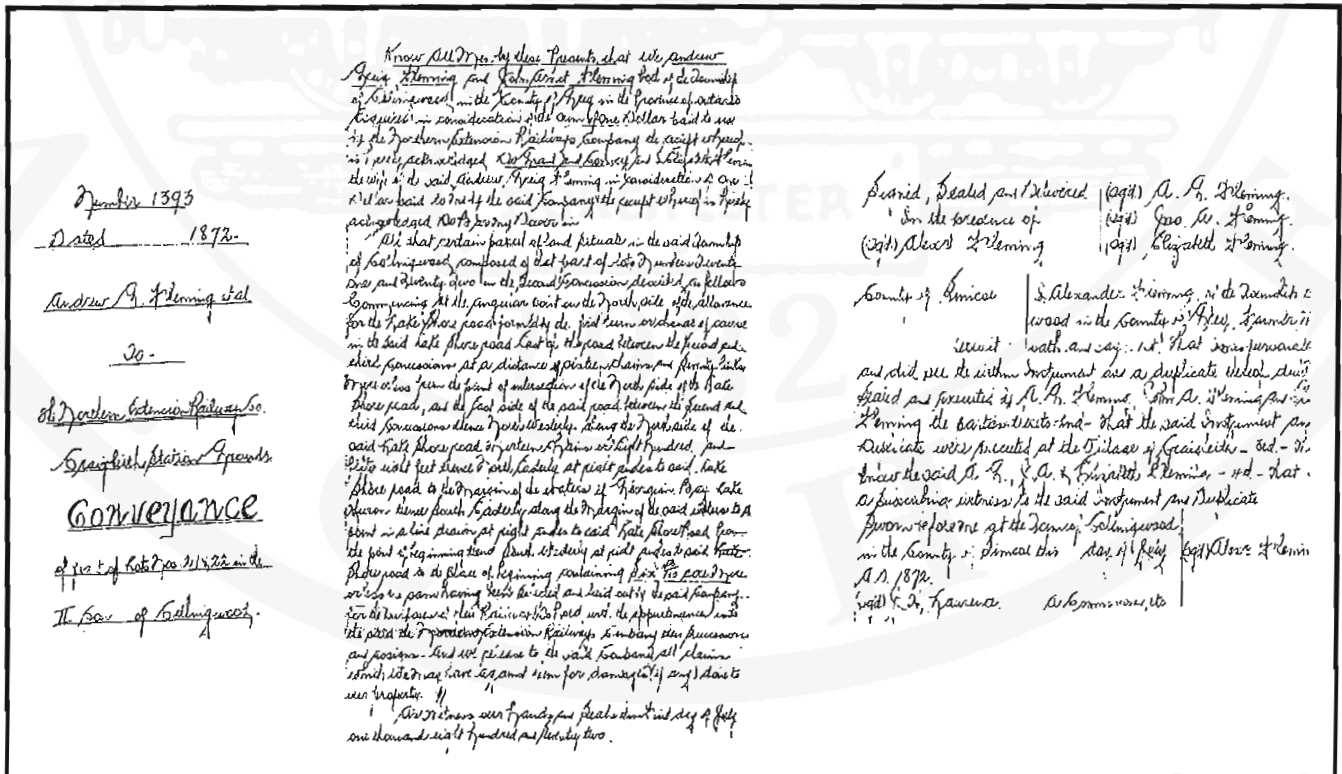 Number 1393
Dated 1872.
Andrew G. Fleming et al
To-
The Northern Extension Railways Co.
Craigleith Station Grounds
Conveyance
of part of Lots Nos. 21 & 22 in the
II Con of Collingwood.
Know All Men by these Presents, that We Andrew
Greig Fleming and John Fleming both of the Township
of Collingwood in the County of Grey in the Province of Ontario
Esquires in consideration of the sum of One Dollar paid to us
by the Northern Extension Railways Company the receipt whereof
is hereby acknowledged Do Grant and Convey and I Elizabeth Fleming
the wife of the said Andrew Greig Fleming in consideration of One
Dollar paid to me by the said Company the receipt whereof is hereby
acknowledged Do
All that certain parcel of land situate in the said Township
of Collingwood composed of that part of Lots Numbers Twenty
one and Twenty two in the Second Concession described as follows
Commencing at the angular point on the North side of the allowance
for the Lake Shore road formed by the turn or change of course
in the said Lake Shore road East of the road between the second and
third Concessions at a distance of sixteen chains and
more or less from the point of intersection of the North side of the Lake
Shore road, and the East side of the said road between the second and
third Concessions thence Westerly along the North side of the
said Lake Shore road chains or Eight hundred and
eight feet thence North Easterly at right angles to said Lake
Shore road to the Margin of the waters of Georgian Bay Lake
Huron thence South Easterly along the Margin of the said waters to a
point in a line drawn at right angles to said Lake Shore Road from
the point of beginning thence South Westerly at right angles to said Lake
Shore road to the place of beginning containing six acres more
or less the same having been selected and laid out by the said Company
for the purposes of their Railway To Hold with the appurtenances unto
the said the Northern Extension Railways Company their successors
and assigns. And we release to the said Company all claims
which we may have for damages (if any) done to
our property.
As witness our hands and seals day of July
one thousand eight hundred and seventy two.
Signed, Sealed and Delivered
In the presence of
(sgd) Alexr Fleming
(sgd) A. G. Fleming.
(sgd) Jno A. Fleming.
(sgd) Elizabeth Fleming.
County of Simcoe
I, Alexander Fleming, of the Township
wood in the County of Grey, Farmer
oath and say: 1st. That I was personally
and did see the within Instrument and a duplicate thereof
sealed and executed by A. G. Fleming, John A. Fleming and
Fleming the parties thereto - 2nd - That the said Instrument and
Duplicate were executed at the Village of Craigleith - 3rd -
know the said A. G., J. A. & Elizabeth Fleming - 4th - That
a subscribing witness to the said instrument and Duplicate
Sworn before me at the Town of Collingwood
in the County of Simcoe this day of July
A.D. 1872.
(sgd) Alexr Flemin
(sgd) Lawrence. A Commissioner, etc